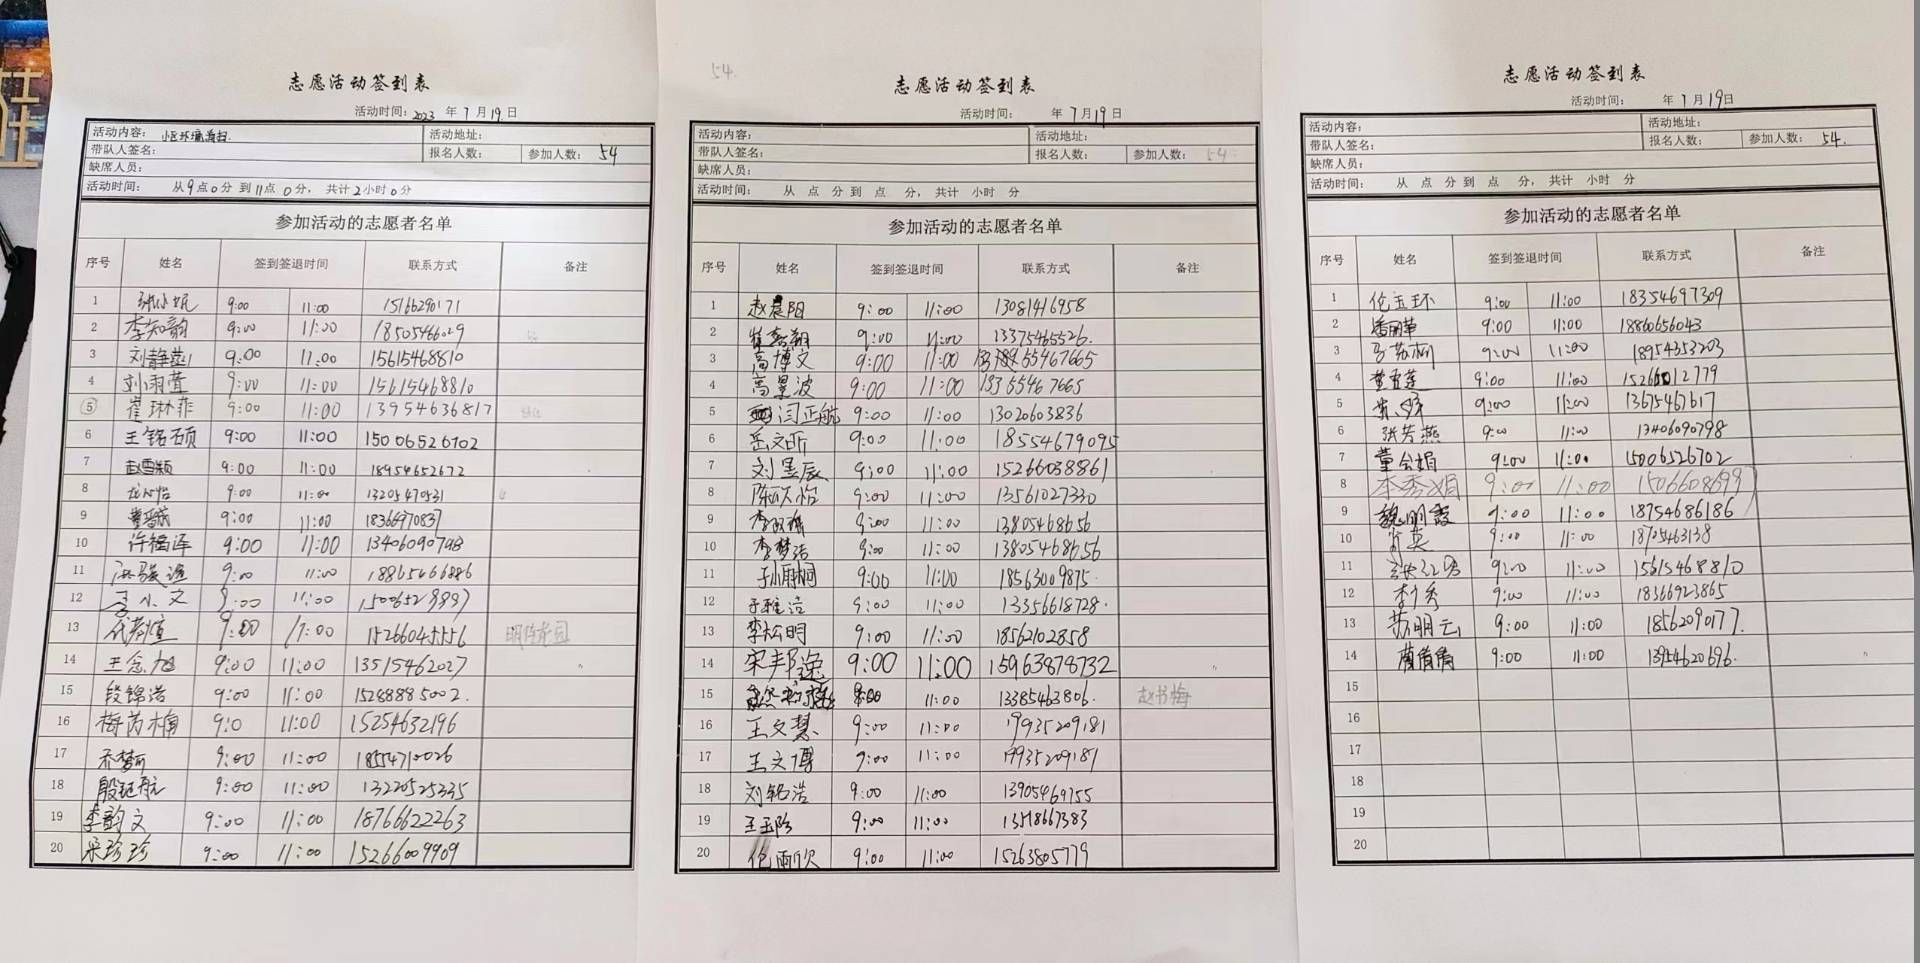 志愿活动签到表
活动时间：2023 年 7 月 19 日
活动内容：小区环境清扫. 活动地址：
带队人签名： 报名人数： 参加人数： 54
缺席人员：
活动时间： 从 9 点 0 分 到 11 点 0 分， 共计 2 小时 0 分
参加活动的志愿者名单
序号 姓名 签到签退时间 联系方式 备注
1 9:00 11:00 15166290171
2 李知韵 9:00 11:00 18505466029
3 刘静燕 9:00 11:00 15615468810
4 刘雨萱 9:00 11:00 15615468810
5 崔琳菲 9:00 11:00 13954636817
6 王铭硕 9:00 11:00 15006526702
7 赵雪颖 9:00 11:00 18954652672
8 龙心怡 9:00 11:00 13205470531
9 9:00 11:00 18366970837
10 许福泽 9:00 11:00 13406090798
11 9:00 11:00 18865466886
12 李小文 9:00 11:00
13 9:00 11:00 15266045556
14 王念旭 9:00 11:00 13515462027
15 段锦浩 9:00 11:00 15288885002.
16 梅芮楠 9:0 11:00 15254632196
17 乔梦可 9:00 11:00 18554710026
18 殷延航 9:00 11:00 13220525335
19 李韵文 9:00 11:00 18766622263
20 宋珍珍 9:00 11:00 15266009909
54.
志愿活动签到表
活动时间： 年 7 月 19 日
活动内容： 活动地址：
带队人签名： 报名人数： 参加人数： 54.
缺席人员：
活动时间： 从 点 分 到 点 分， 共计 小时 分
参加活动的志愿者名单
序号 姓名 签到签退时间 联系方式 备注
1 赵晨阳 9:00 11:00 13081416958
2 9:00 11:00 13375465526.
3 高博文 9:00 11:00 65467665
4 高昱波 9:00 11:00 18365467665
5 闫正航 9:00 11:00 1302603836
6 岳文昕 9:00 11:00 18554679095
7 刘昱辰 9:00 11:00 15266038861
8 陈欣怡 9:00 11:00 13561027330
9 9:00 11:00 13805468656
10 李梦洁 9:00 11:00 13805468656
11 于小雨桐 9:00 11:00 18563009875.
12 于雅洁 9:00 11:00 13356618728.
13 李松明 9:00 11:00 18562102358
14 宋邦逸 9:00 11:00 15963878732
15 9:00 11:00 13385463806. 赵书梅
16 王文慧 9:00 11:00 19935209181
17 王文博 9:00 11:00 19935209181
18 刘铭浩 9:00 11:00 13905469755
19 王玉珍 9:00 11:00 13518667383
20 伦雨欣 9:00 11:00 15263805779
志愿活动签到表
活动时间： 年 7 月 19 日
活动内容： 活动地址：
带队人签名： 报名人数： 参加人数： 54.
缺席人员：
活动时间： 从 点 分 到 点 分， 共计 小时 分
参加活动的志愿者名单
序号 姓名 签到签退时间 联系方式 备注
1 伦玉环 9:00 11:00 18354697309
2 潘丽华 9:00 11:00 18860656043
3 9:00 11:00 18954353203
4 董爱莲 9:00 11:00 15266012779
5 9:00 11:00 13675467617
6 张芳燕 9:00 11:00 13406090798
7 董会娟 9:00 11:00 15006526702
8 李秀娟 9:00 11:00 15066086991
9 魏明霞 9:00 11:00 18754686186
10 9:00 11:00 18725463138
11 9:00 11:00 15615468810
12 李秀 9:00 11:00 18366923865
13 苏明云 9:00 11:00 18562090177.
14 蔺倩倩 9:00 11:00 13954620696.
15
16
17
18
19
20